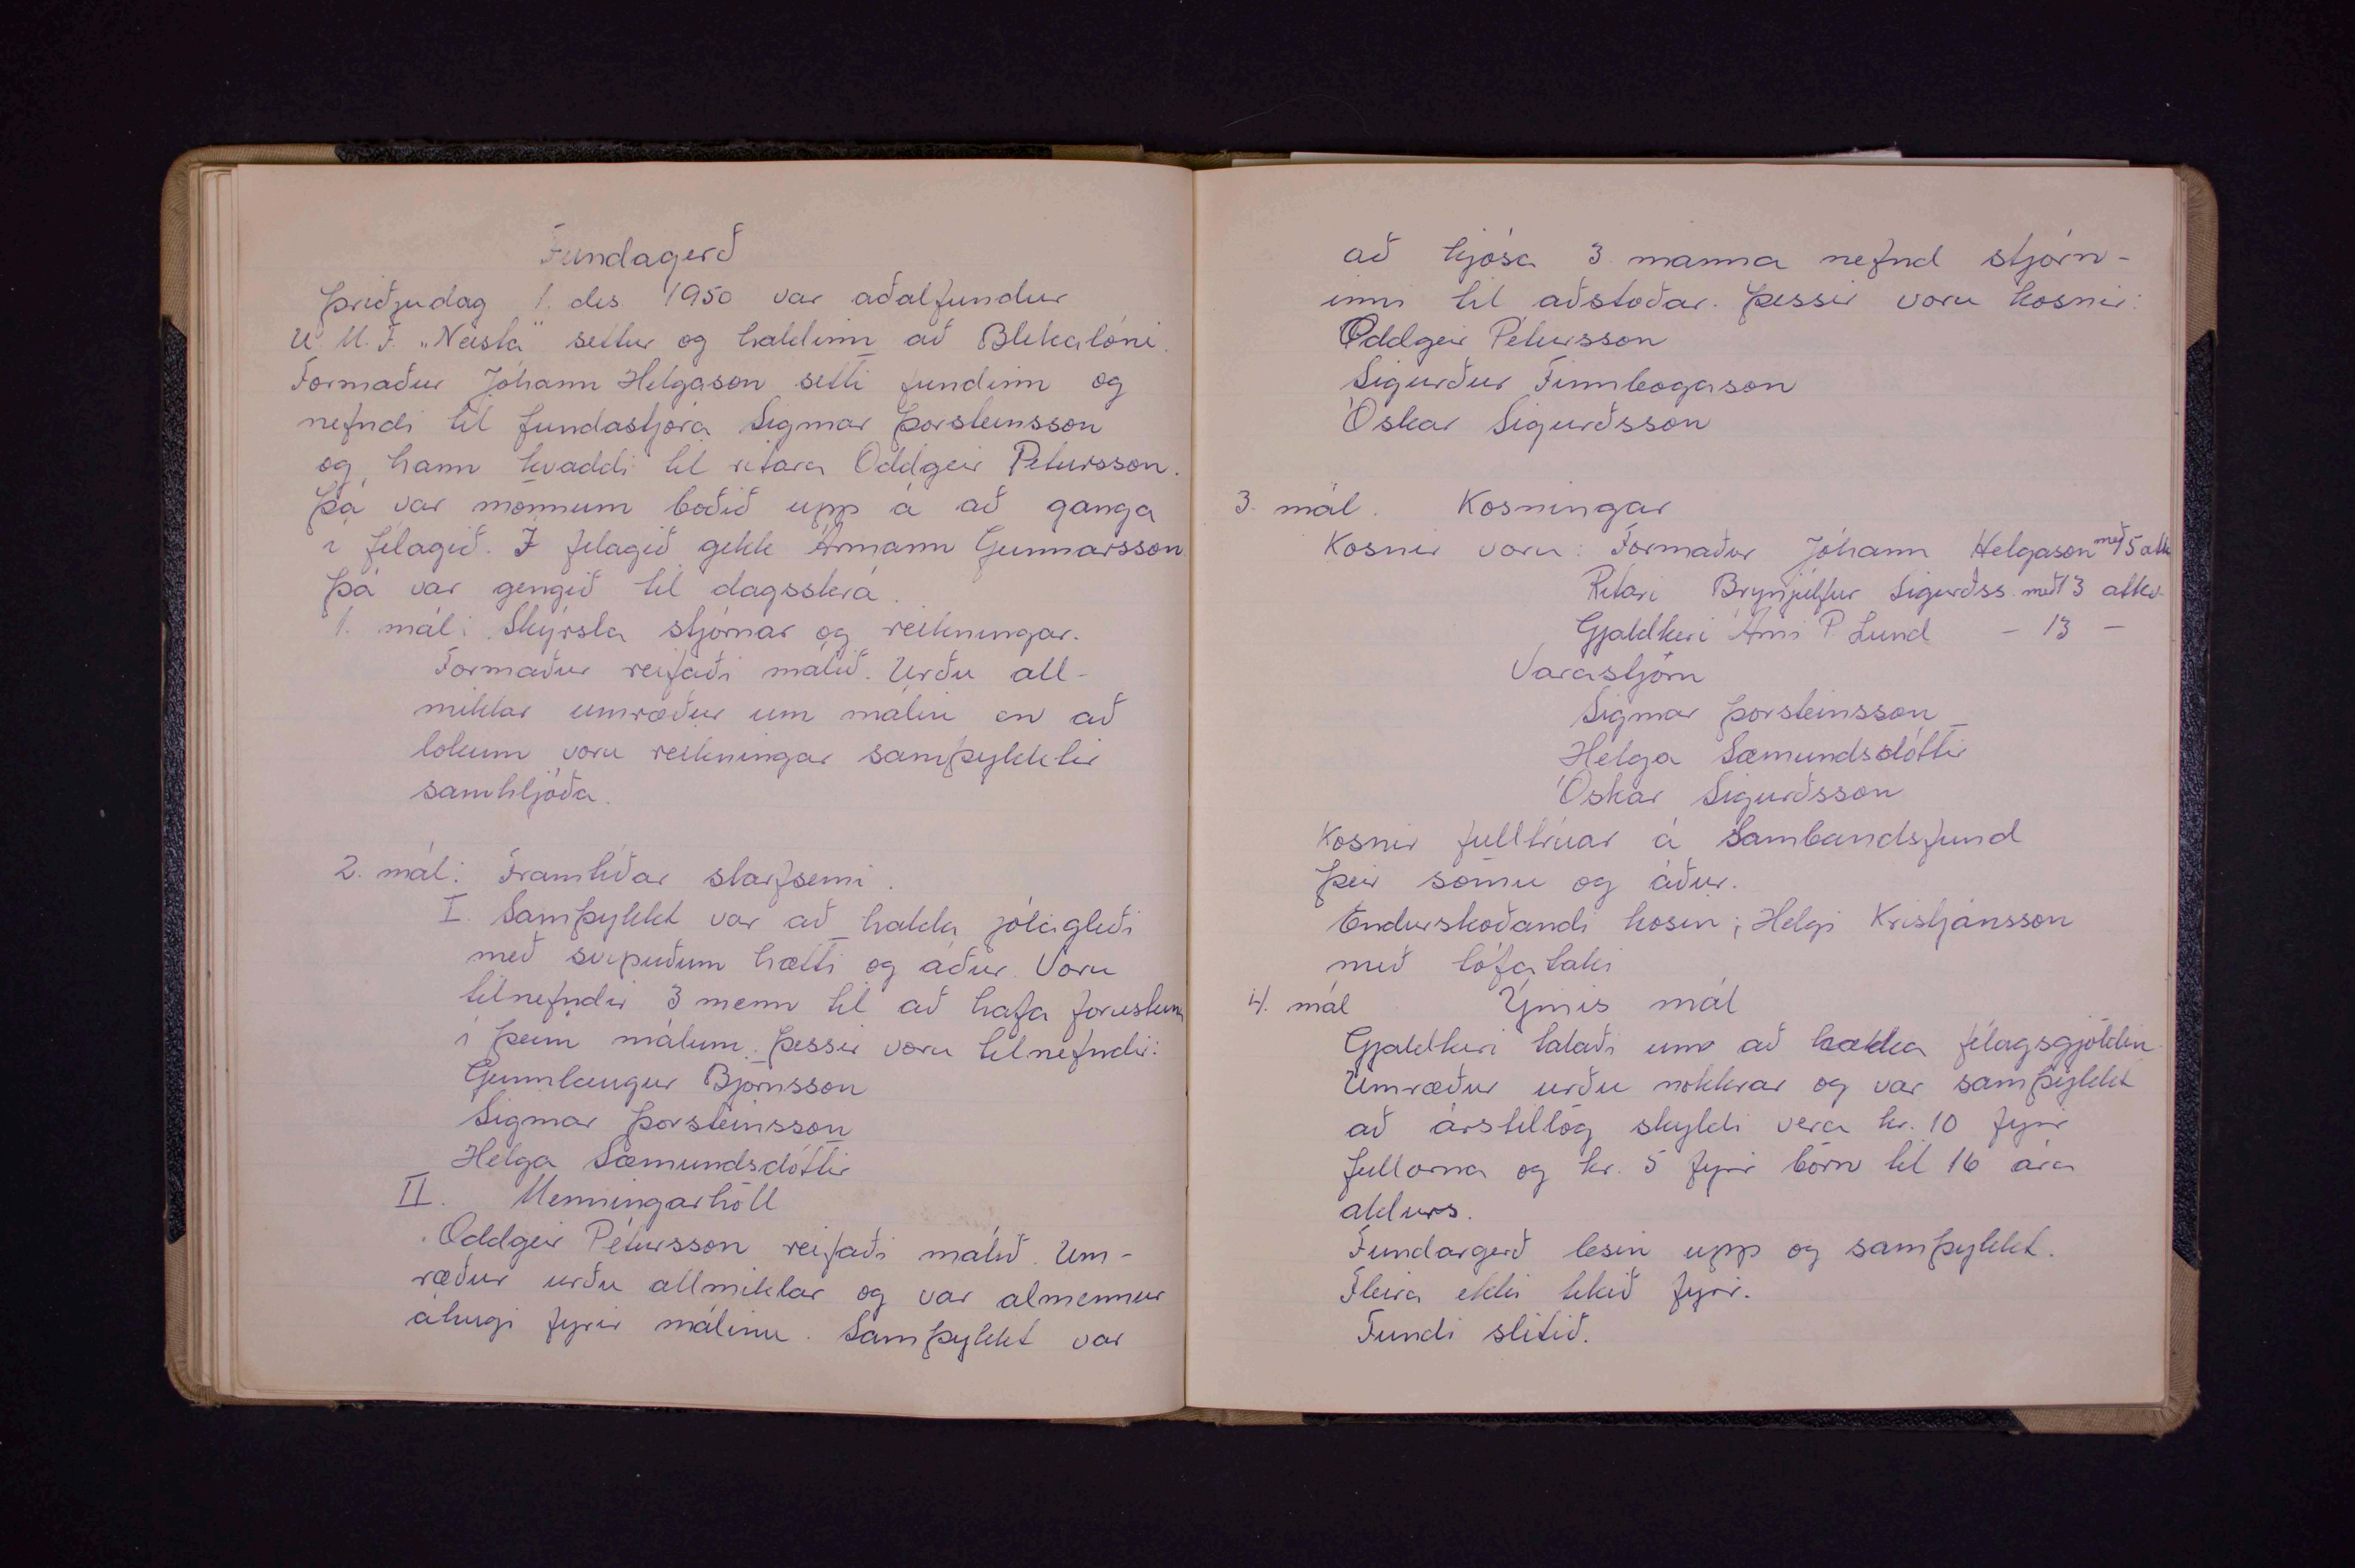 Fundagerð
Þriðjudag 1. des 1950 var aðalfundur
U. M. F. „Neista" settur og haldinn að Blikalóni.
Formaður Jóhann Helgason setti fundinn og
nefndi til fundastjóra Sigmar Þorsteinsson
og hann kvaddi til ritara Oddgeir Pétursson.
Þá var mönnum boðið upp á að ganga
í félagið. Í félagið gekk Ármann Gunnarsson
Þá var gengið til dagsskrá.
1. mál: Skýrsla stjórnar og reikningar.
Formaður reifaði málið. Urðu all-
miklar umræður um málin en að
lokum voru reikningar samþykktir
samhljóða.
2. mál: Framtíðar starfsemi.
I. Samþykkt var að halda jólagleði
með svipuðum hætti og áður. Voru
tilnefndir 3 menn til að hafa forustuna
í þeim málum. Þessir voru tilnefndir:
Gunnlaugur Björnsson
Sigmar Þorsteinsson
Helga Sæmundsdóttir
II. Menningarhöll
Oddgeir Pétursson reifaði málið. Um-
ræður urðu allmiklar og var almennur
áhugi fyrir málinu. Samþykkt var
að kjósa 3 manna nefnd stjórn-
inni til aðstoðar. Þessir voru kosnir:
Oddgeir Pétursson
Sigurður Finnbogason
Óskar Sigurðsson
3. mál. Kosningar
Kosnir voru: Formaður Jóhann Helgason með 15 atk
Ritari Brynjúlfur Sigurðss. með 13 atkv.
Gjaldkeri Árni P. Lund – 13 –
Varastjórn
Sigmar Þorsteinsson
Helga Sæmundsdóttir
Óskar Sigurðsson
Kosnir fulltrúar á Sambandsfund
þeir sömu og áður.
Endurskoðandi kosin; Helgi Kristjánsson
með lófataki
4. mál Ýmis mál
Gjaldkeri talaði um að hækka félagsgjöldin.
Umræður urðu nokkrar og var samþykkt
að árstillög skyldi vera kr. 10 fyrir
fullorna og kr. 5 fyrir börn til 16 ára
aldurs.
Fundargerð lesin upp og samþykkt.
Fleira ekki tekið fyrir.
Fundi slitið.